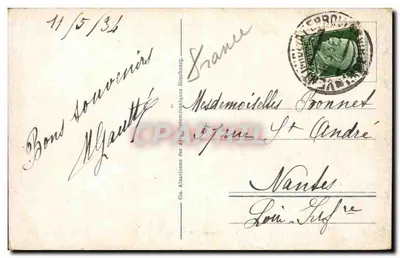 11/5/34
France
Bons souvenirs
MGautté
Mesdemoiselles Bonnet
57 rue St André
Nantes
Loire Infre
Cie. Alsacienne des Arts Photomécaniques Strasbourg.
CARTE-PRECIEUSE